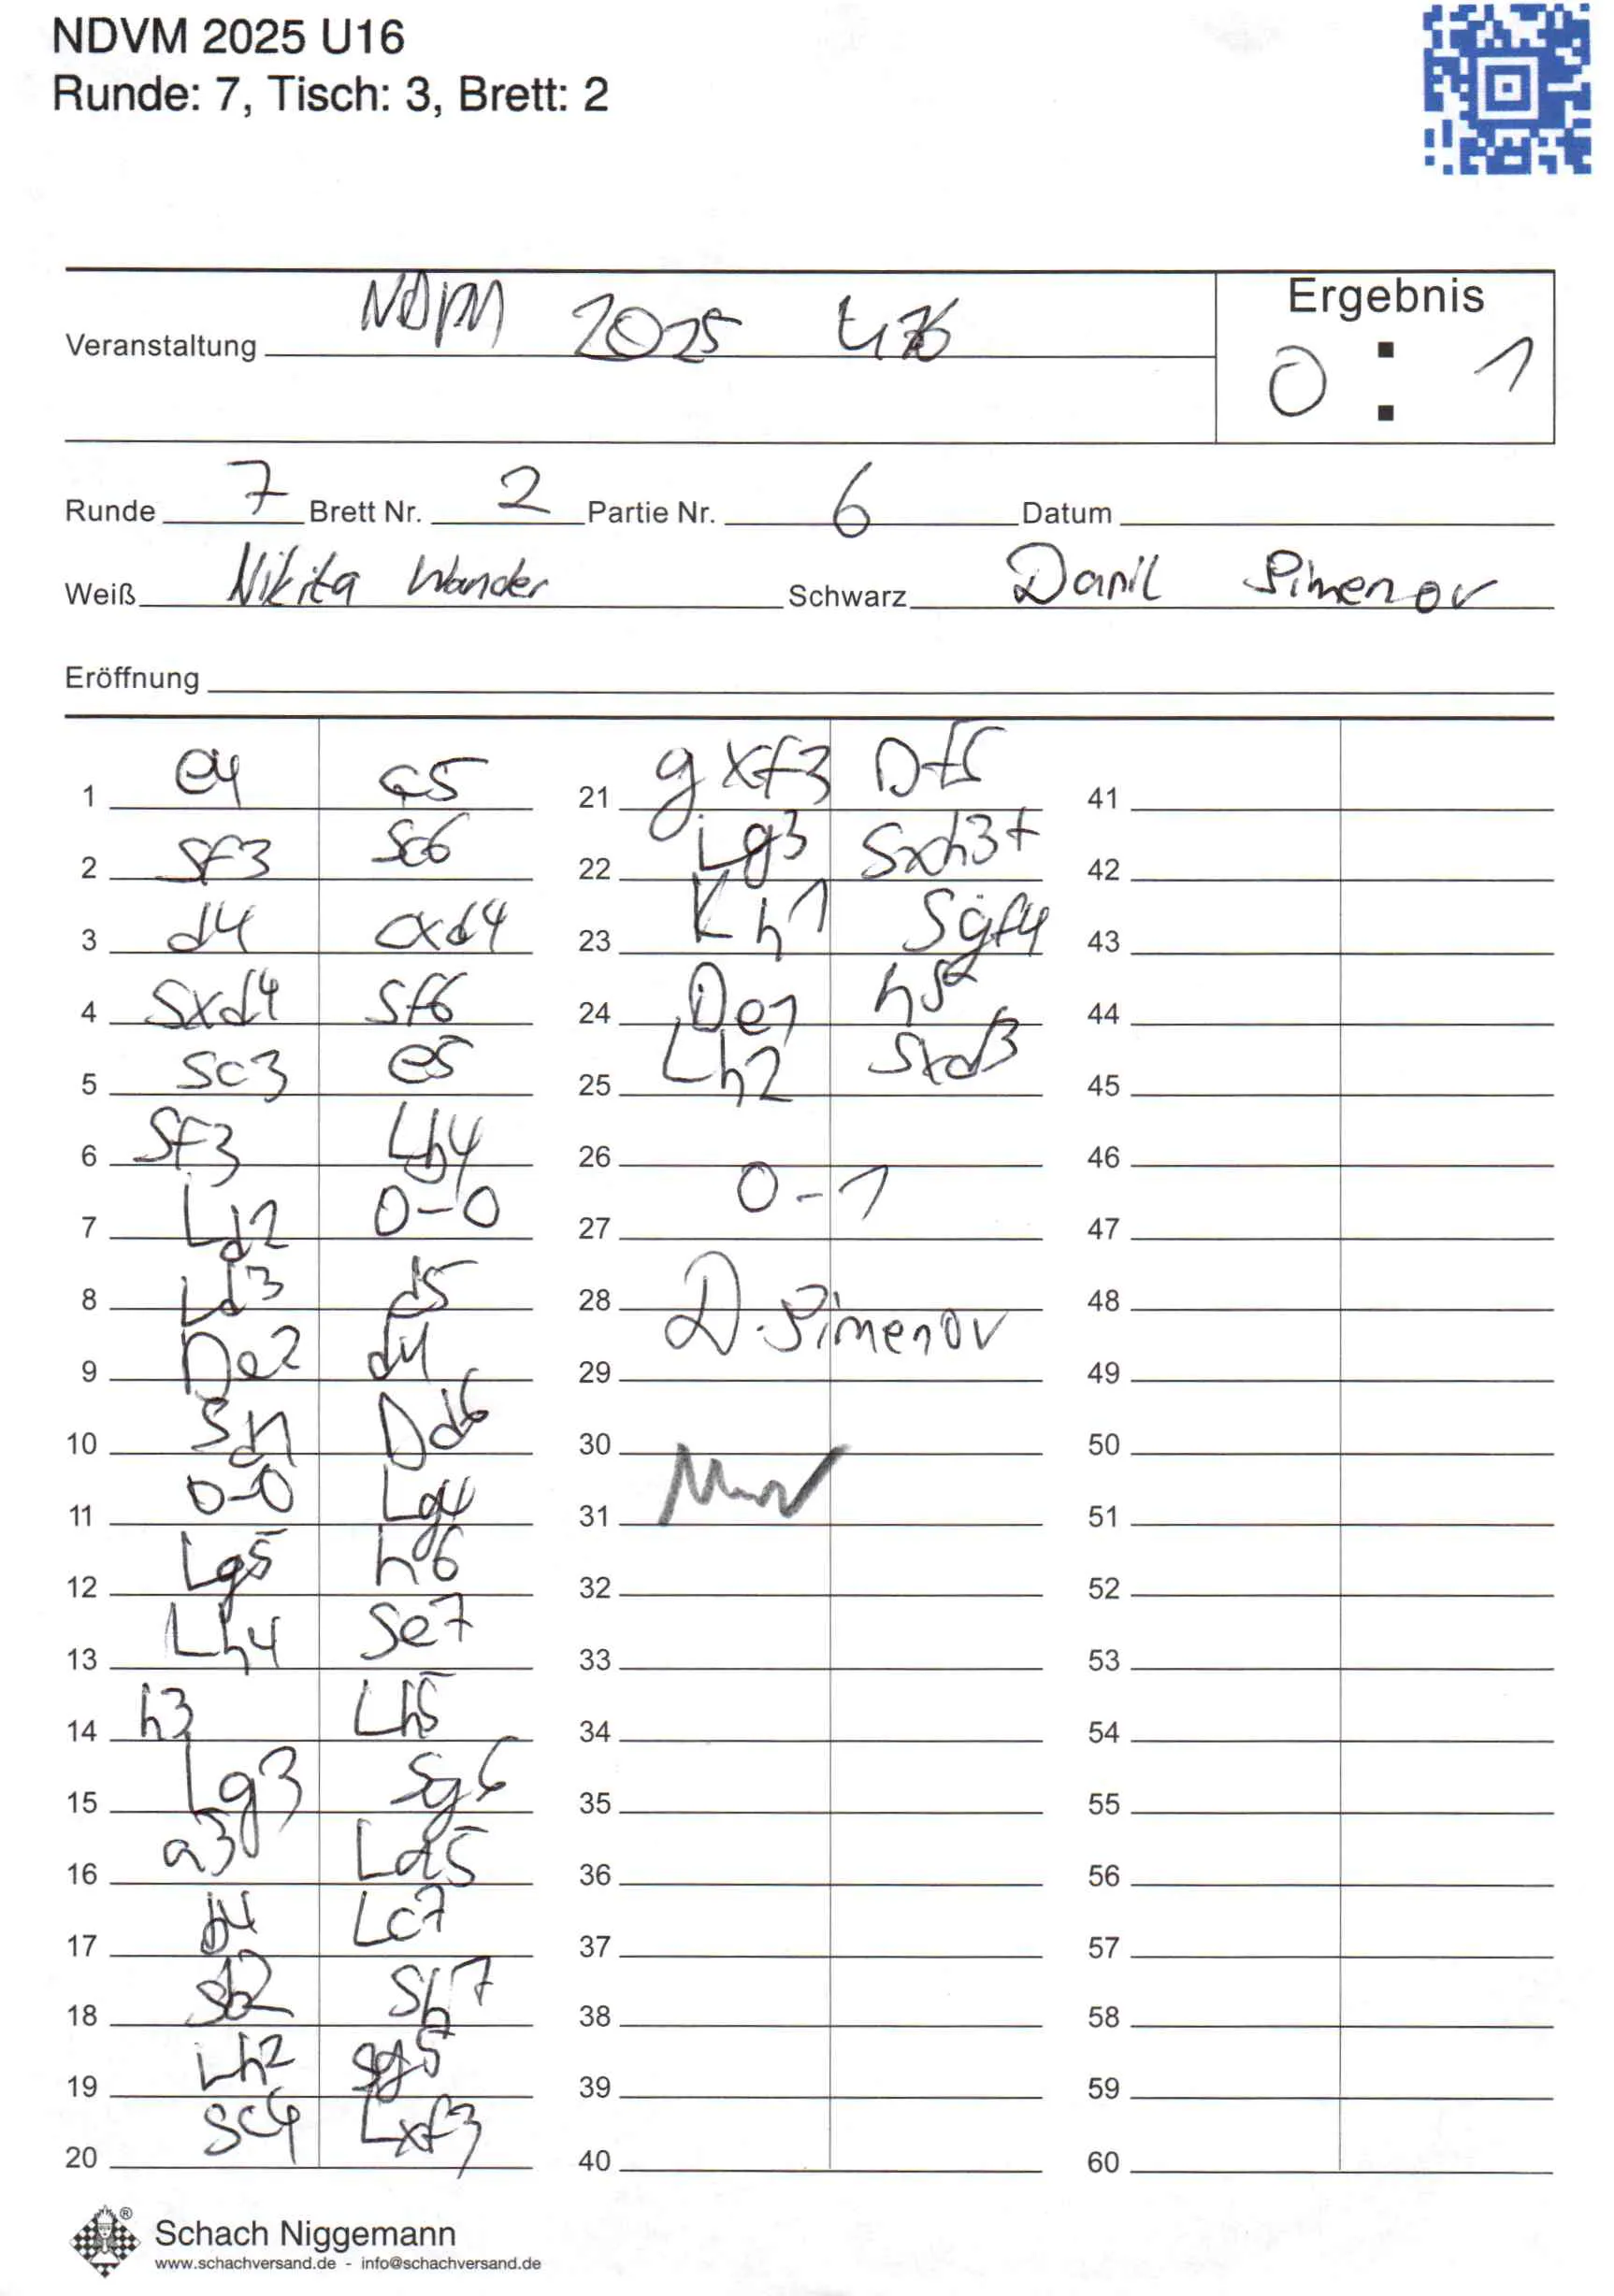 NDVM 2025 U16
Runde: 7, Tisch: 3, Brett: 2
Veranstaltung NDVM 2025 U16
Ergebnis
0 : 1
Runde 7 Brett Nr. 2 Partie Nr. 6 Datum
Weiß Nikita Wander Schwarz Danil Pimenov
Eröffnung
1 e4 c5
2 Sf3 Sc6
3 d4 cxd4
4 Sxd4 Sf6
5 Sc3 e5
6 Sf3 Lb4
7 Ld2 0-0
8 Ld3 d5
9 De2 d4
10 Sd1 Dd6
11 0-0 Lg4
12 Lg5 h6
13 Lh4 Se7
14 h3 Lh5
15 Lg3 Sg6
16 a3 La5
17 b4 Lc7
18 Sb2 Sh7
19 Lh2 Sg5
20 Sc4 Lxf3
21 gxf3 Df6
22 Lg3 Sxh3+
23 Kh1 Sgf4
24 De1 h5
25 Lh2 Sxd3
26
0-1
27
28 D.Pimenov
29
30
31
32
33
34
35
36
37
38
39
40
41
42
43
44
45
46
47
48
49
50
51
52
53
54
55
56
57
58
59
60
Schach Niggemann
www.schachversand.de - info@schachversand.de